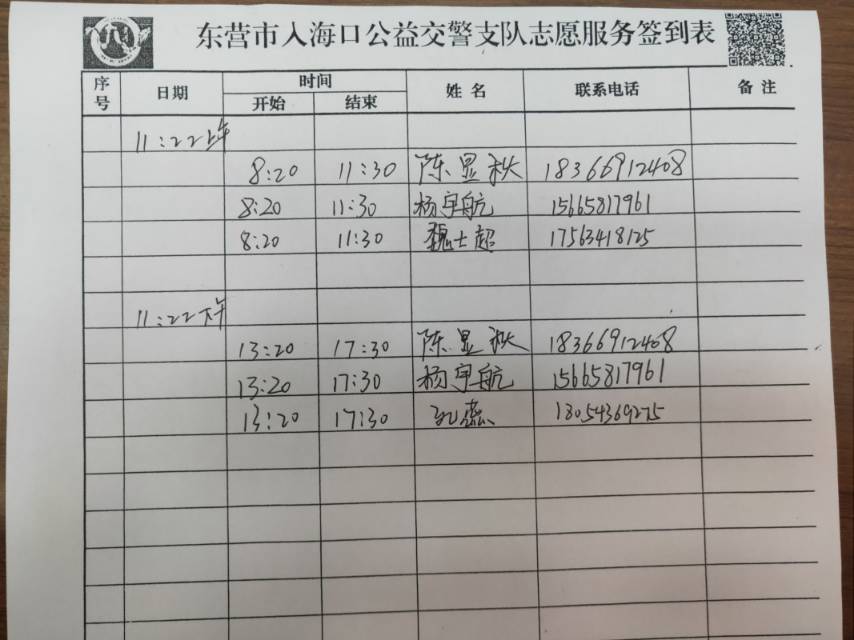 东营市入海口公益交警支队志愿服务签到表
序号 日期 时间 开始 结束 姓名 联系电话 备注
11:22上午
8:20 11:30 陈显秋 18366912408
8:20 11:30 杨宇航 15665817961
8:20 11:30 魏士超 17563418125
11:22下午
13:20 17:30 陈显秋 18366912408
13:20 17:30 杨宇航 15665817961
13:20 17:30 孔蕊 18054369275